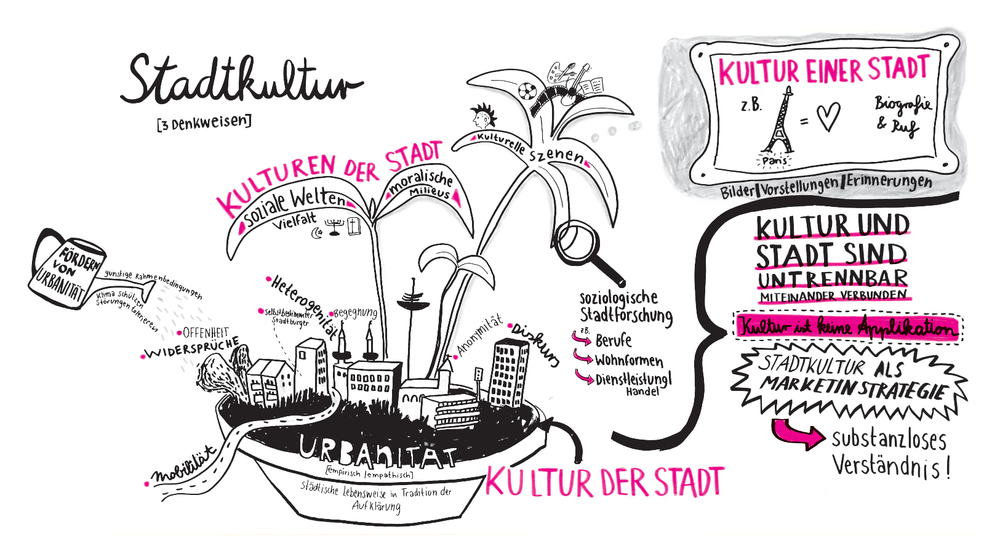 Stadtkultur
[3 Denkweisen]
KULTUREN DER STADT
soziale Welten
Vielfalt
moralische
Milieus
Kulturelle Szenen
KULTUR EINER STADT
z.B.
Paris
=
Biografie
& Ruf
Bilder/Vorstellungen/Erinnerungen
KULTUR UND
STADT SIND
UNTRENNBAR
MITEINANDER VERBUNDEN
Kultur ist keine Applikation
STADTKULTUR ALS
MARKETINSTRATEGIE
substanzloses
Verständnis!
FÖRDERN
VON
URBANITÄT
günstige Rahmenbedingungen
Klima schützen
OFFENHEIT
WIDERSPRÜCHE
Heterogenität
selbstbestimmter
Stadtbürger
Begegnung
Anonymität
Diskurs
soziologische
Stadtforschung
z.B.
Berufe
Wohnformen
Dienstleistung/
Handel
Mobilität
URBANITÄT
[empirisch/empathisch]
städtische Lebensweise in Tradition der
Aufklärung
KULTUR DER STADT